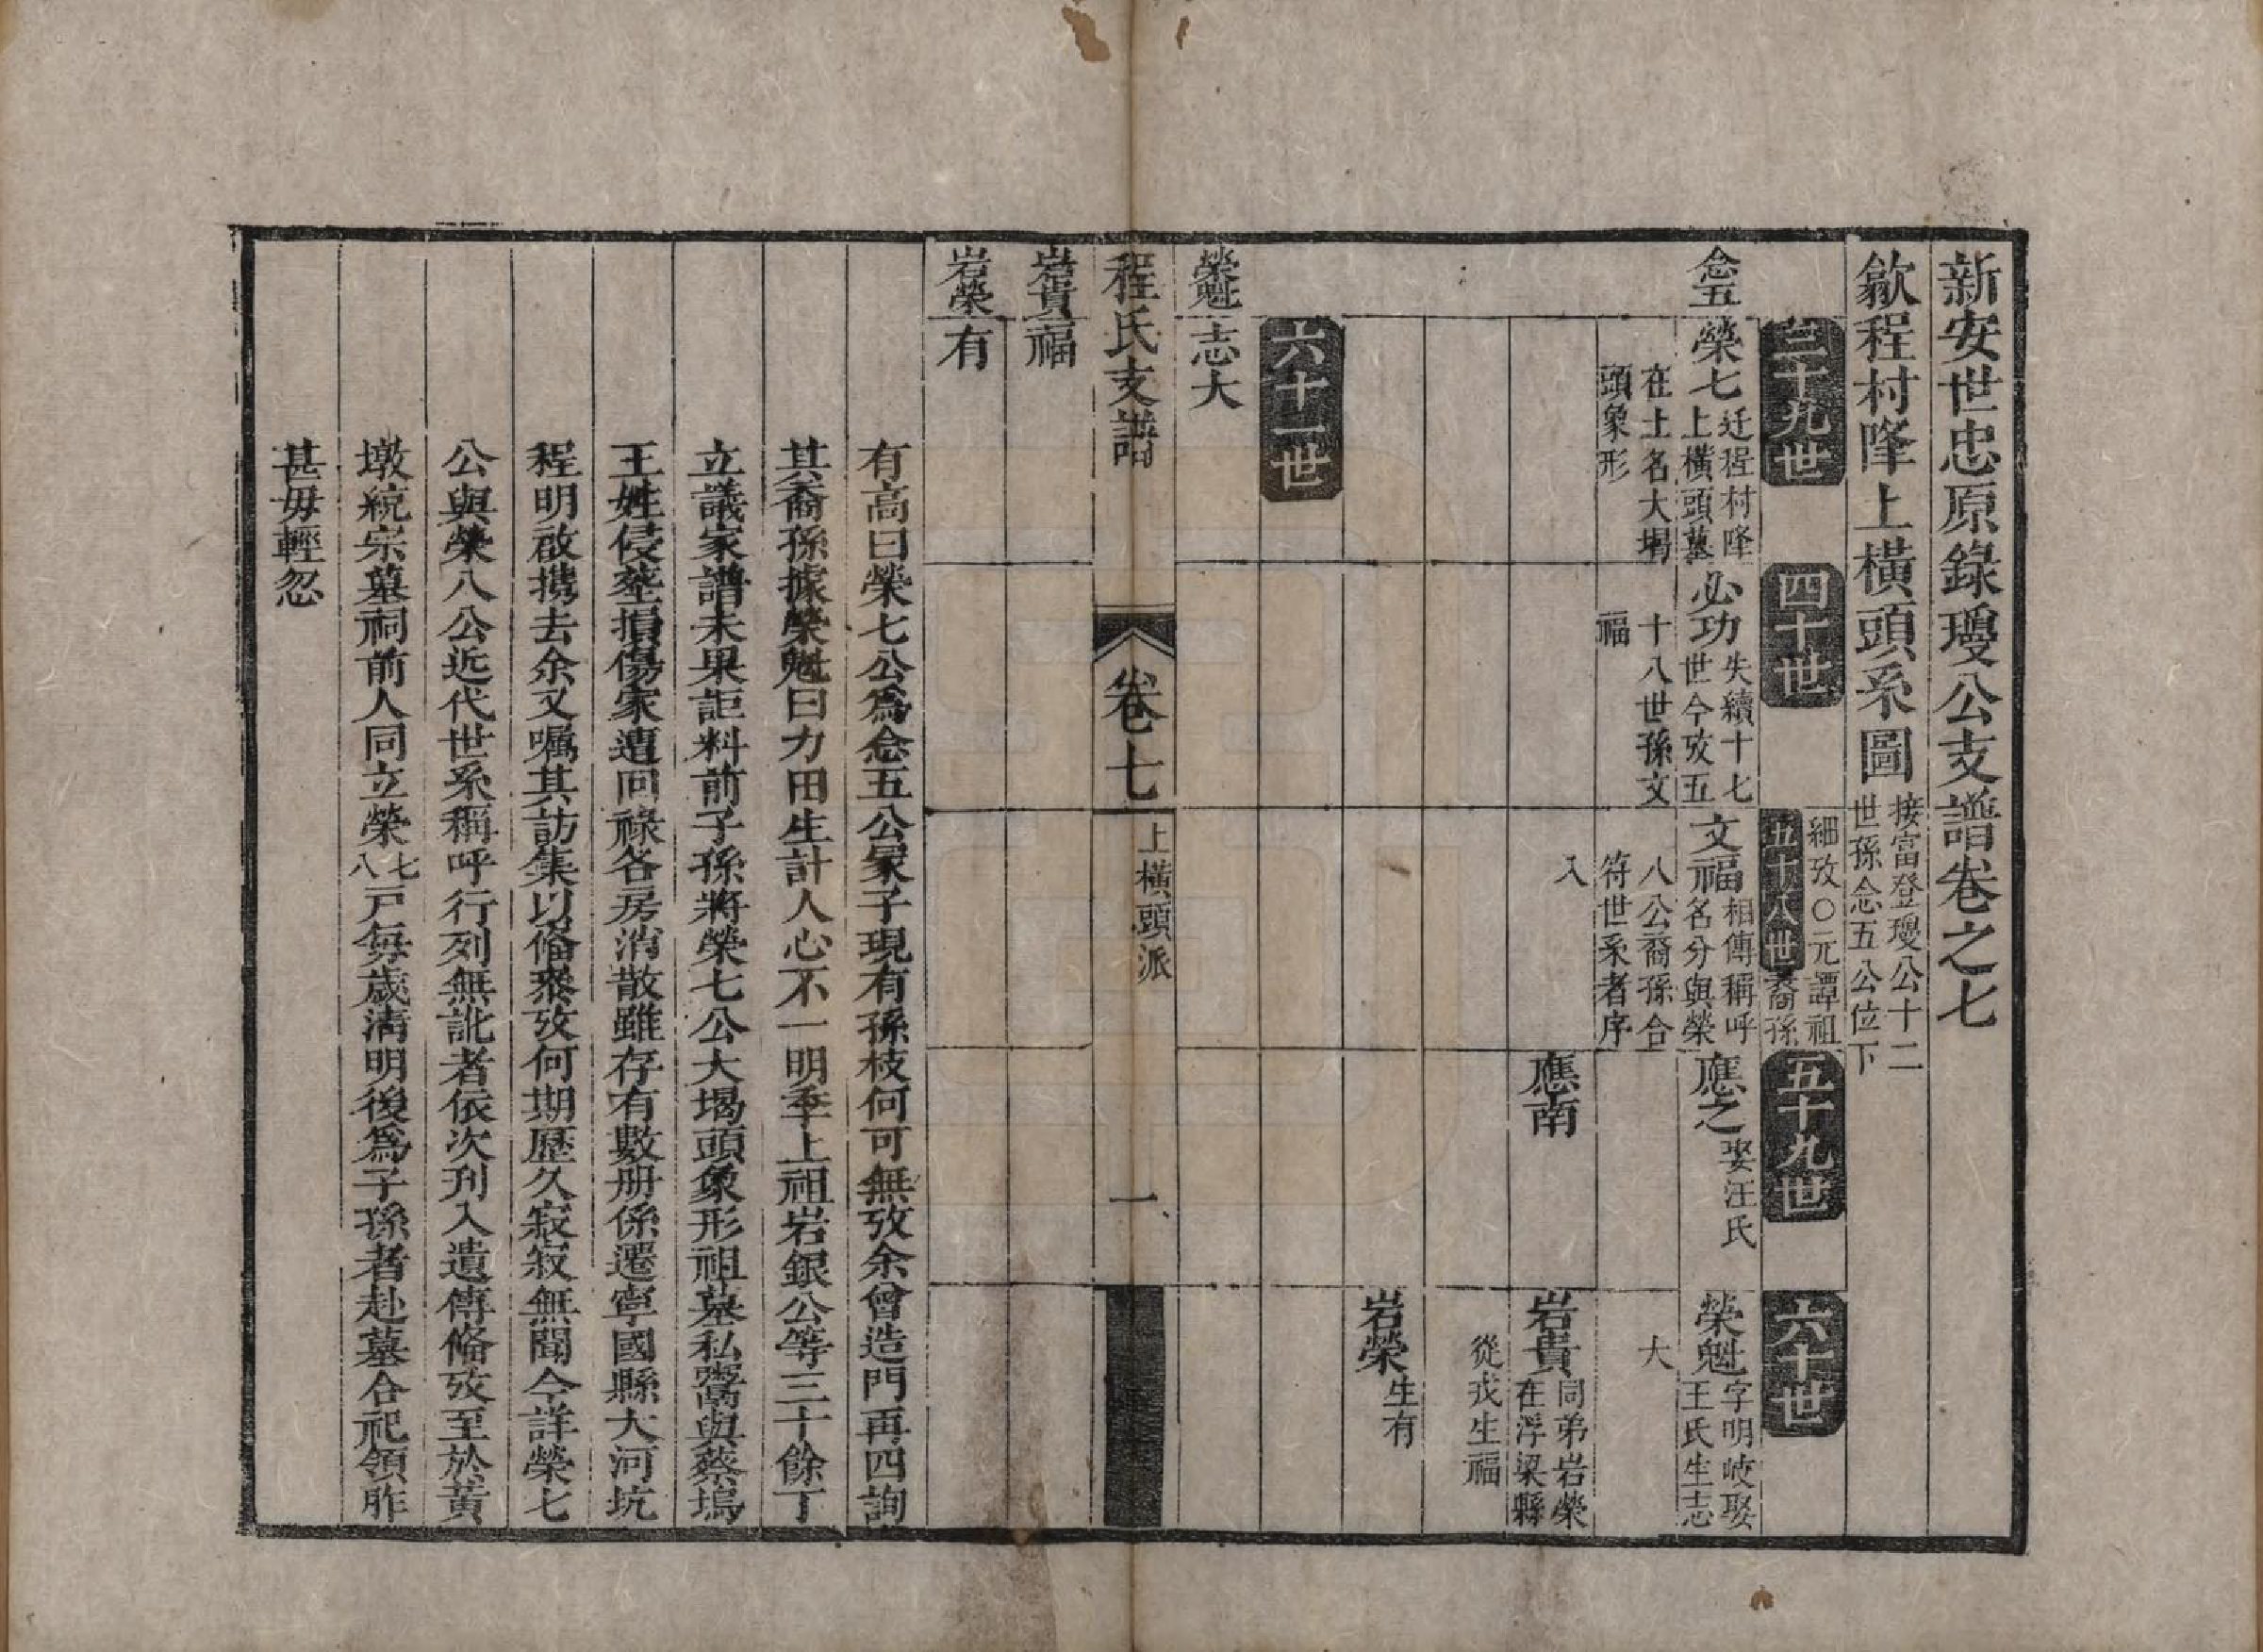 新安世忠原錄瓊公支譜卷之七
歙程村隆上橫頭系圖
接富登瓊公十二
世孫念五公位下
三十九世
四十世
細攷○元譚祖
五十八世裔孫
五十九世
六十世
念五
榮七
迁程村隆
上橫頭墓
在土名大堨
頭象形
必功
失續十七
世今攷五
十八世孫文
福
文福
相傳稱呼
名分與榮
八公裔孫合
符世系者序
入
應之
娶汪氏
榮魁
字明岐娶
王氏生志
大
應南
岩貴
同弟岩榮
在浮梁縣
從戎生福
岩榮
生有
六十一世
榮魁
志大
程氏支譜
卷七
上橫頭派
一
岩貴
福
岩榮
有
有高曰榮七公爲念五公冢子現有孫枝何可無攷余曾造門再四詢
其裔孫據榮魁曰力田生計人心不一明季上祖岩銀公等三十餘丁
立議家譜未果詎料前子孫將榮七公大堨頭象形祖墓私鬻與蔡塢
王姓侵塟損傷家遭回祿各房消散雖存有數册係遷寧國縣大河坑
程明啟携去余又囑其訪集以偹叅攷何期歷久寂寂無聞今詳榮七
公與榮八公近代世系稱呼行列無訛者依次刋入遺傳偹攷至於黃
墩統宗墓祠前人同立榮七八戸每歲淸明後爲子孫者赴墓合祀領胙
甚毋輕忽